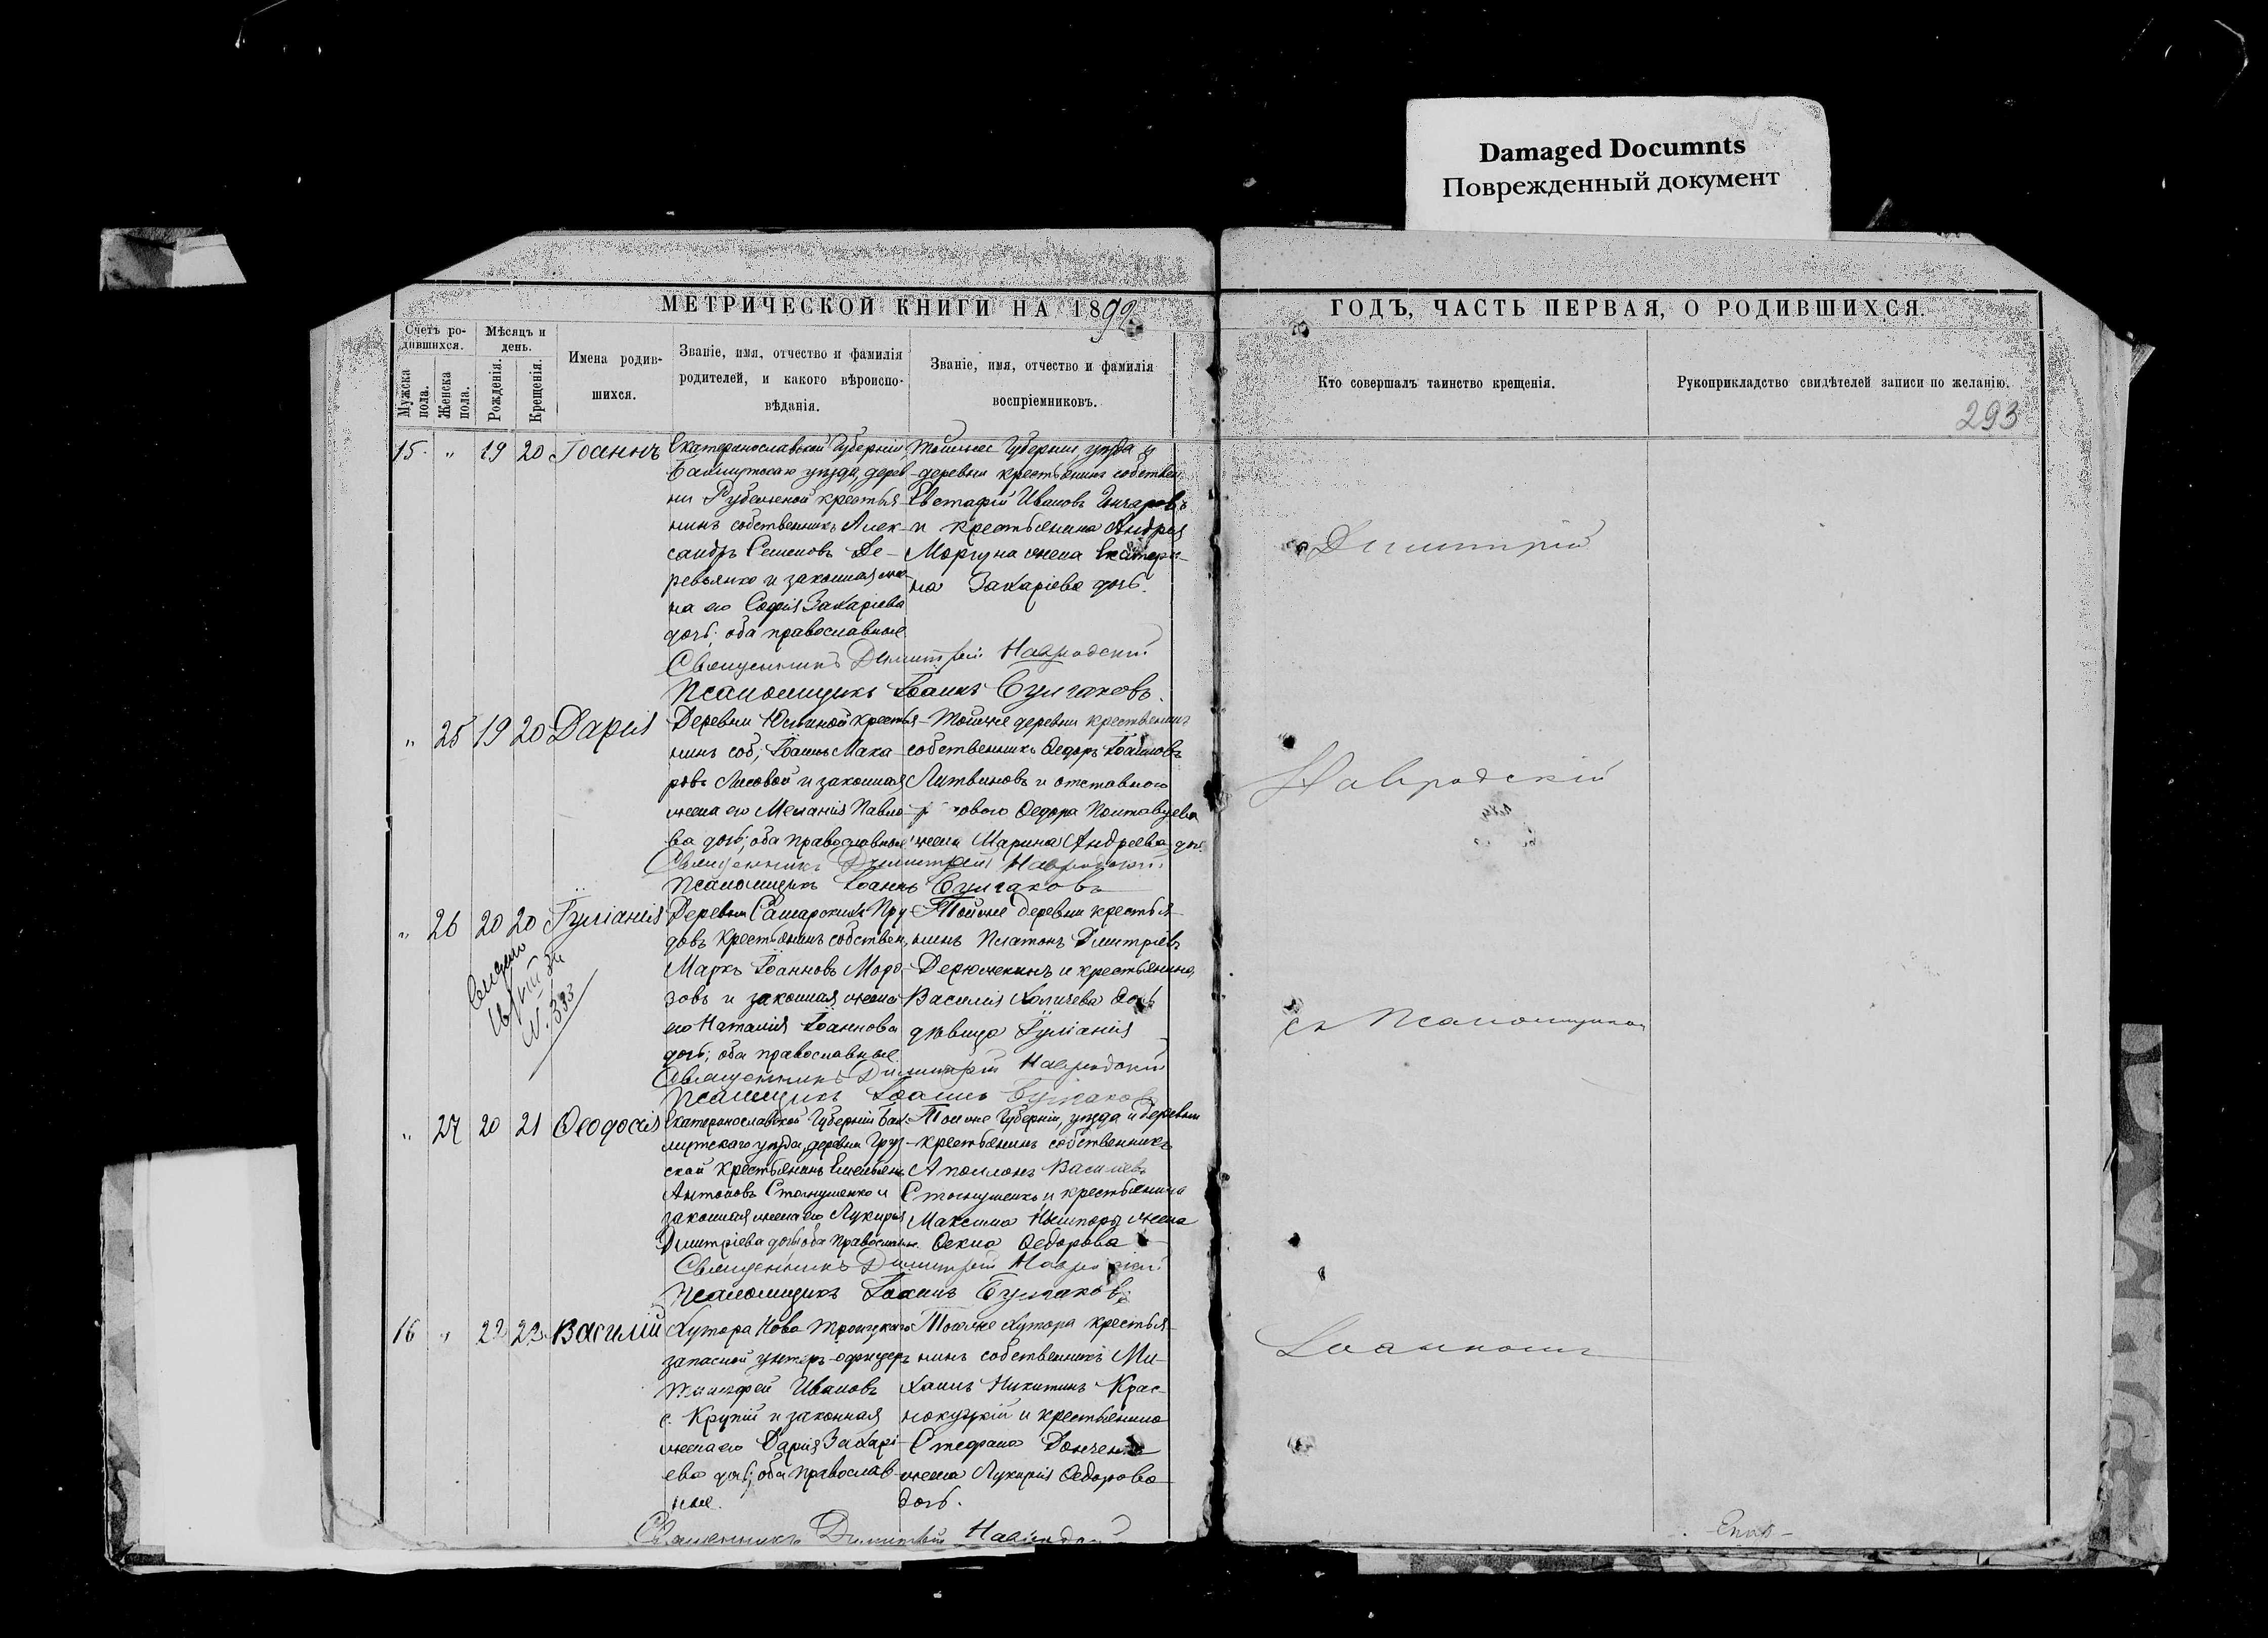 Damaged Documnts
Поврежденный документ
МЕТРИЧЕСКОЙ КНИГИ НА 1892
ГОДЪ, ЧАСТЬ ПЕРВАЯ, О РОДИВШИХСЯ.
Счетъ ро-
дившихся.
Мужска пола.
Женска пола.
Мѣсяцъ и
день.
Рожденія.
Крещенія.
Имена родив-
шихся.
Званіе, имя, отчество и фамилія
родителей, и какого вѣроиспо-
вѣданія.
Званіе, имя, отчество и фамилія
воспріемниковъ.
Кто совершалъ таинство крещенія.
Рукоприкладство свидѣтелей записи по желанію.
293
15. " 19 20 Іоаннъ
Екатеринославской Губерніи
Бахмутскаго уѣзда, дерев
ни Рубежной крестья-
нинъ собственникъ Алек-
сандръ Семеновъ Де-
ревянко и законная же-
на его Софія Захаріева
дочь; оба православные
Тойже Губерніи, уѣзда и
деревни крестьянинъ собствен.
Евстафій Ивановъ Гончаровъ
и крестьянина Андрея
Моргуна жена Екатери-
на Захаріева дочь.
Священникъ Димитрій Навродскій
Псаломщикъ Іоаннъ Булгаковъ.
" 25 19 20 Дарія
Деревни крестья-
нинъ соб; Іоаннъ Мака-
ровъ Лисовой и законная
жена его Меланія Павло-
ва дочь; оба православные
Тойже деревни крестьянинъ
собственникъ Ѳедоръ Іоанновъ
Литвиновъ и отставного
Ѳедора Полтавцева
жена Марина Андреева дочь.
Священникъ Димитрій Навродскій
Псаломщикъ Іоаннъ Булгаковъ
" 26 20 20 Іуліанія
№. 393
Деревни Самарскихъ Пру-
довъ крестьянинъ собствен,
Маркъ Іоанновъ Моро-
зовъ и законная жена
его Наталія Іоаннова
дочь; оба православные.
Тойже деревни крестья-
нинъ Платонъ Дмитріевъ
и крестьянина
Василія дочь
дѣвица Іуліанія
Священникъ Димитрій Навродскій
Псаломщикъ Іоаннъ Булгаковъ
" 27 20 21 Ѳеодосія
Екатеринославской Губерніи Бах-
мутскаго уѣзда, деревни Груз-
ской крестьянинъ Емельянъ
Антоновъ и
законная жена его Лукирія
Дмитріева дочь оба православн.
Тойже Губерніи, уѣзда и деревни
крестьянинъ собственникъ
Аполлонъ Васильевъ
и крестьянина
Максима жена
Ѳекла Ѳедорова
Священникъ Димитрій Навродскій
Псаломщикъ Іоаннъ Булгаковъ
16 " 22 22 Василій
Хутора Ново Троицкаго
запасной унтеръ-офицеръ
Тимофей Ивановъ
Крупій и законная
жена его Дарія Захарі-
ева дочь; оба православ-
ные.
Тойже Хутора крестья-
нинъ собственникъ Ми-
хаилъ Никитинъ Крас-
нокутскій и крестьянина
Стефана Донченка
жена Лукирія Ѳедорова
дочь.
Священникъ Димитрій Навродскій
Димитрій
Навродскій
съ Псаломщикомъ
Іоанномъ